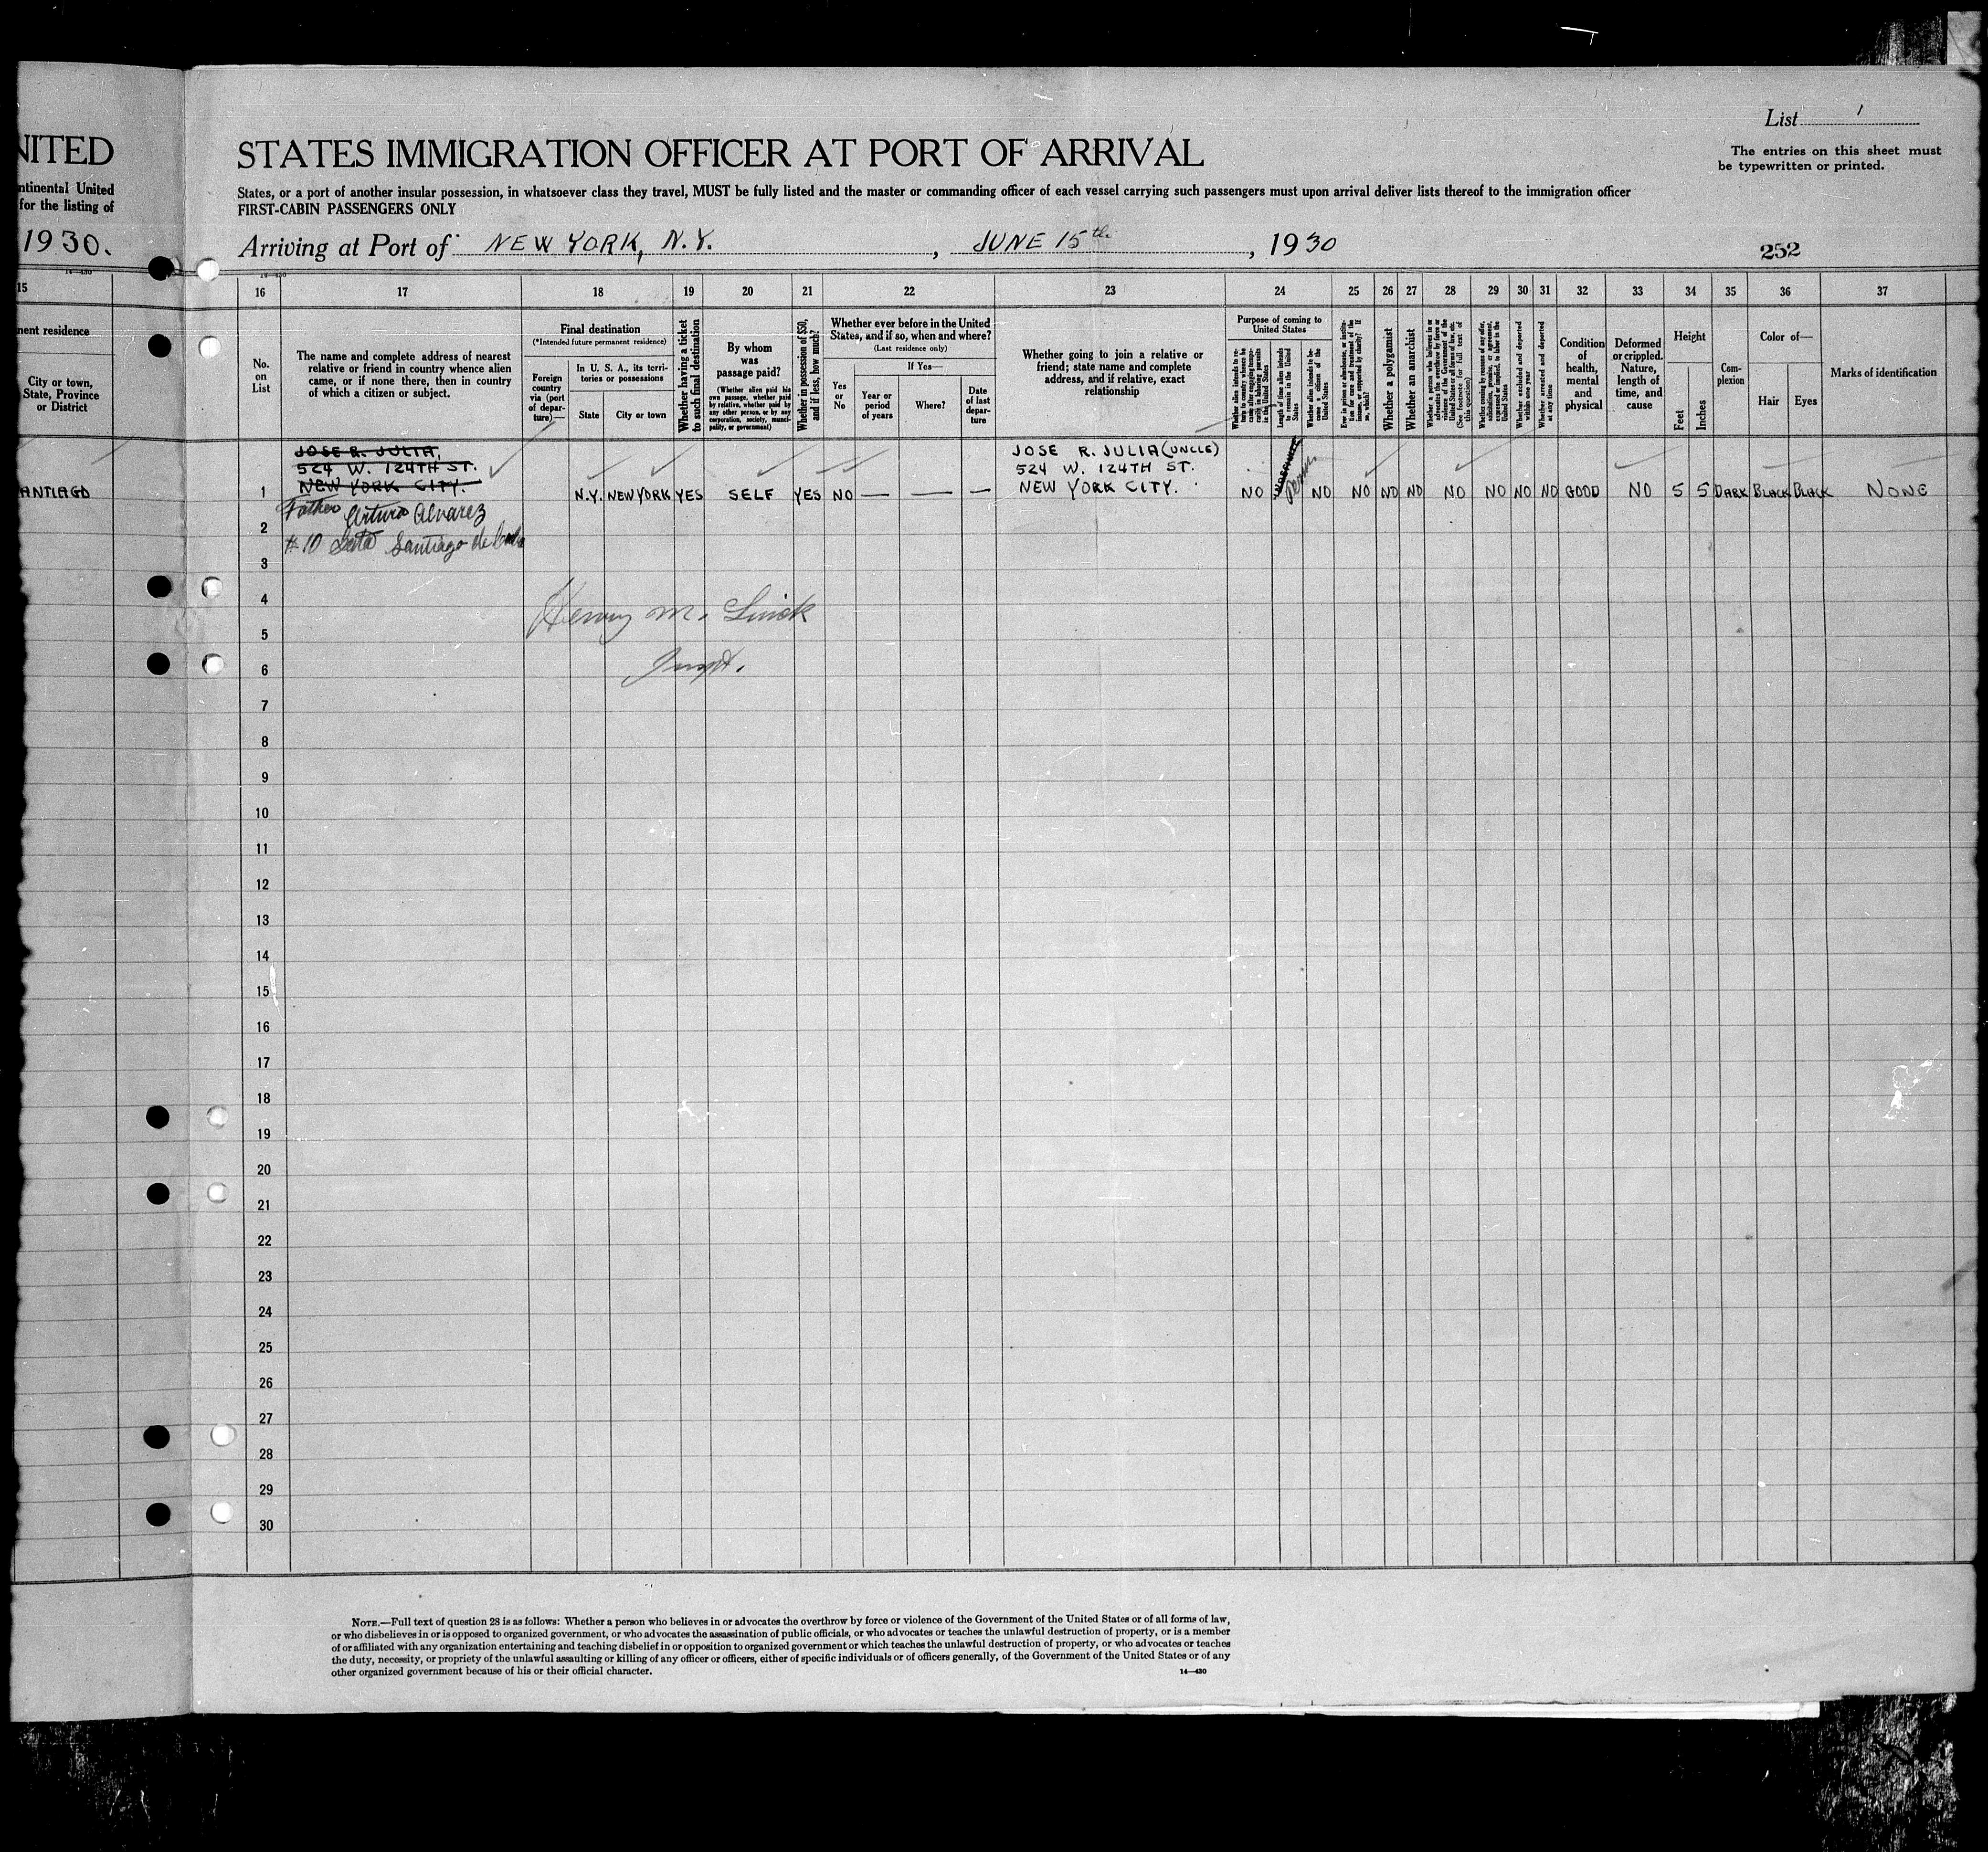 List 1
The entries on this sheet must
be typewritten or printed.
NITED
STATES IMMIGRATION OFFICER AT PORT OF ARRIVAL
ntinental United
for the listing of
States, or a port of another insular possession, in whatsoever class they travel, MUST be fully listed and the master or commanding officer of each vessel carrying such passengers must upon arrival deliver lists thereof to the immigration officer
FIRST-CABIN PASSENGERS ONLY
1930.
Arriving at Port of NEW YORK, N.Y., JUNE 15th, 1930
252
14-430
14-430
15 16 17 18 19 20 21 22 23 24 25 26 27 28 29 30 31 32 33 34 35 36 37
nent residence
City or town,
State, Province
or District
No.
on
List
The name and complete address of nearest
relative or friend in country whence alien
came, or if none there, then in country
of which a citizen or subject.
Final destination
(*Intended future permanent residence)
Foreign
country
via (port
of depar-
ture)—
In U. S. A., its terri-
tories or possessions
State
City or town
Whether having a ticket
to such final destination
By whom
was
passage paid?
(Whether alien paid his
own passage, whether paid
by relative, whether paid by
any other person, or by any
corporation, society, munici-
pality, or government)
Whether in possession of $50,
and if less, how much?
Whether ever before in the United
States, and if so, when and where?
(Last residence only)
Yes
or
No
If Yes—
Year or
period
of years
Where?
Date
of last
depar-
ture
Whether going to join a relative or
friend; state name and complete
address, and if relative, exact
relationship
Purpose of coming to
United States
Whether alien intends to re-
turn to country whence he
came after engaging tempo-
rarily in laboring pursuits
in the United States
Length of time alien intends
to remain in the United
States
Whether alien intends to be-
come a citizen of the
United States
Ever in prison or almshouse, or institu-
tion for care and treatment of the
insane, or supported by charity? If
so, which?
Whether a polygamist
Whether an anarchist
Whether a person who believes in or
advocates the overthrow by force or
violence of the Government of the
United States or all forms of law, etc.
(See footnote for full text of
this question)
Whether coming by reason of any offer,
solicitation, promise, or agreement,
expressed or implied, to labor in the
United States
Whether excluded and deported
within one year
Whether arrested and deported
at any time
Condition
of
health,
mental
and
physical
Deformed
or crippled.
Nature,
length of
time, and
cause
Height
Feet
Inches
Com-
plexion
Color of—
Hair
Eyes
Marks of identification
JOSE R. JULIA,
524 W. 124TH ST.
NEW YORK CITY.
JOSE R. JULIA (UNCLE)
524 W. 124TH ST.
NEW YORK CITY.
ANTIAGO
1 N.Y. NEW YORK YES SELF YES NO — — — NO NO NO NO NO NO NO NO NO GOOD NO 5 5 DARK BLACK BLACK NONE
Father Arturo Alvarez
2
#10 Santiago de Cuba
3
4
Henry M. Linick
5
Inspt.
6
7
8
9
10
11
12
13
14
15
16
17
18
19
20
21
22
23
24
25
26
27
28
29
30
NOTE.—Full text of question 28 is as follows: Whether a person who believes in or advocates the overthrow by force or violence of the Government of the United States or of all forms of law,
or who disbelieves in or is opposed to organized government, or who advocates the assassination of public officials, or who advocates or teaches the unlawful destruction of property, or is a member
of or affiliated with any organization entertaining and teaching disbelief in or opposition to organized government or which teaches the unlawful destruction of property, or who advocates or teaches
the duty, necessity, or propriety of the unlawful assaulting or killing of any officer or officers, either of specific individuals or of officers generally, of the Government of the United States or of any
other organized government because of his or their official character.
14—430